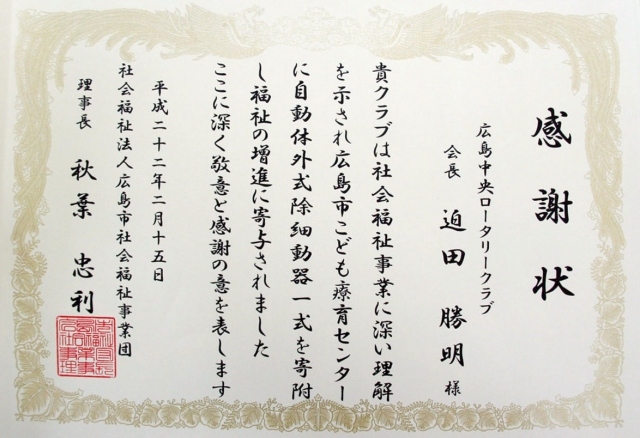 感謝状
広島中央ロータリークラブ
会長 迫田 勝明 様
貴クラブは社会福祉事業に深い理解
を示され広島市こども療育センター
に自動体外式除細動器一式を寄附
し福祉の増進に寄与されました
ここに深く敬意と感謝の意を表します
平成二十二年二月十五日
社会福祉法人広島市社会福祉事業団
理事長 秋葉 忠利